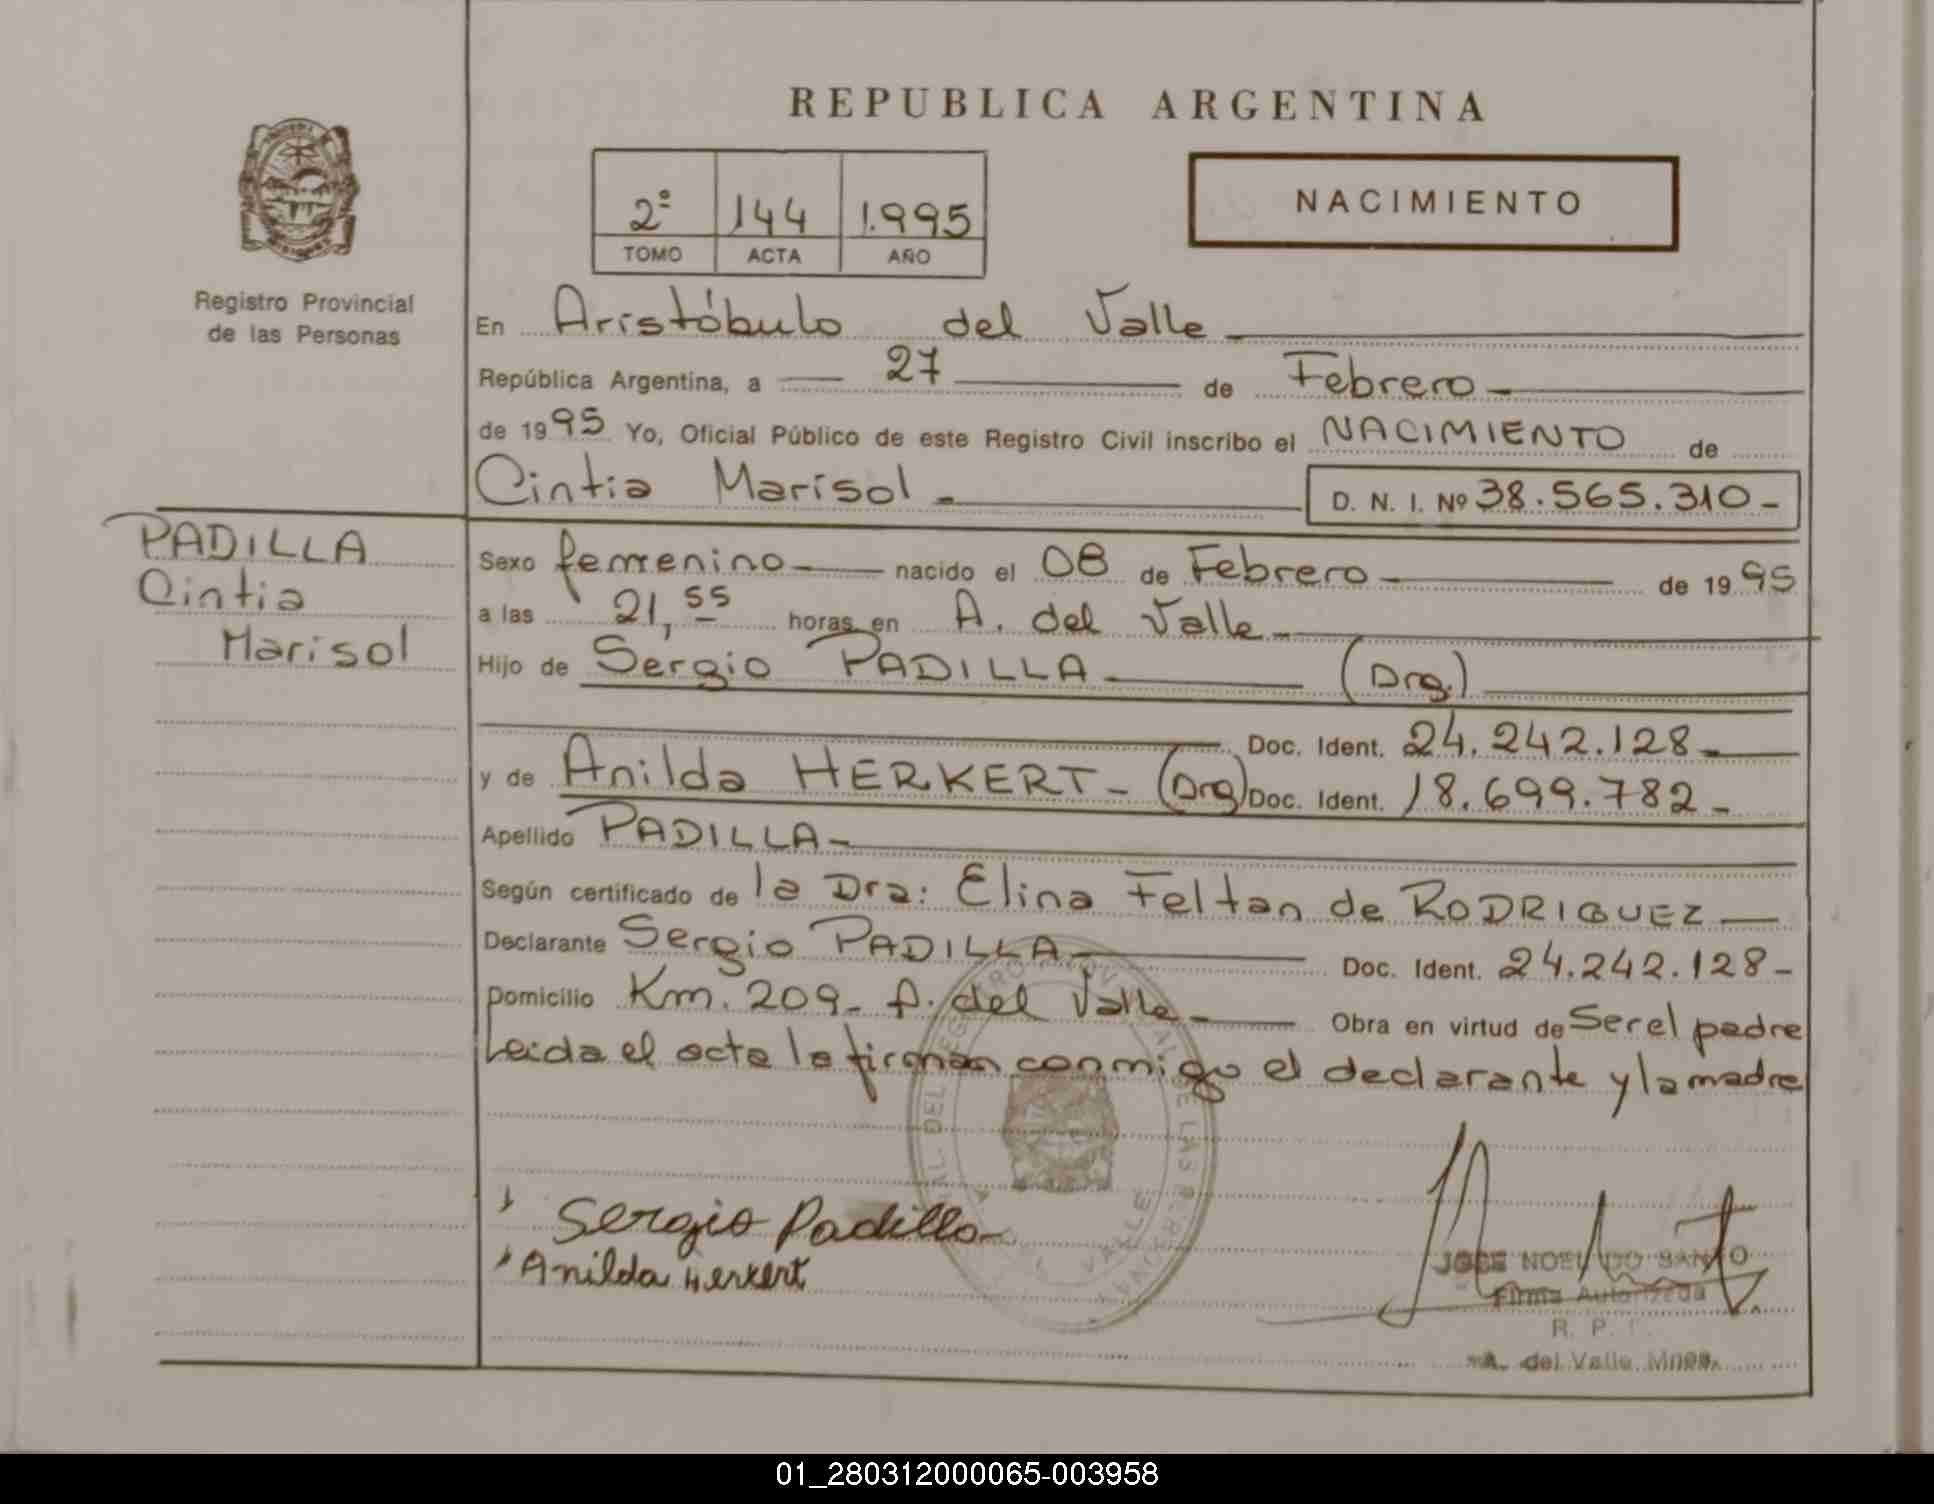 REPUBLICA ARGENTINA
NACIMIENTO
2º 144 1.995
TOMO ACTA AÑO
Registro Provincial
de las Personas
En Aristóbulo del Valle
República Argentina, a 27 de Febrero
de 1995 Yo, Oficial Público de este Registro Civil inscribo el NACIMIENTO de
Cintia Marisol - D. N. I. Nº 38.565.310-
PADILLA
Cintia
Marisol
Sexo femenino nacido el 08 de Febrero de 1995
a las 21,55 horas en A. del Valle
Hijo de Sergio PADILLA (Arg.)
Doc. Ident. 24.242.128-
y de Anilda HERKERT - (Arg) Doc. Ident. 18.699.782-
Apellido PADILLA-
Según certificado de la Dra: Elina Feltan de RODRIGUEZ
Declarante Sergio PADILLA Doc. Ident. 24.242.128-
Domicilio Km. 209- A. del Valle Obra en virtud de Ser el padre
Leida el acta la firman conmigo el declarante y la madre
Sergio Padilla
Anilda Herkert
JOSE NOEL DO SANTO
Firma Autorizada
R. P.
A. del Valle, Mnes.
01_280312000065-003958